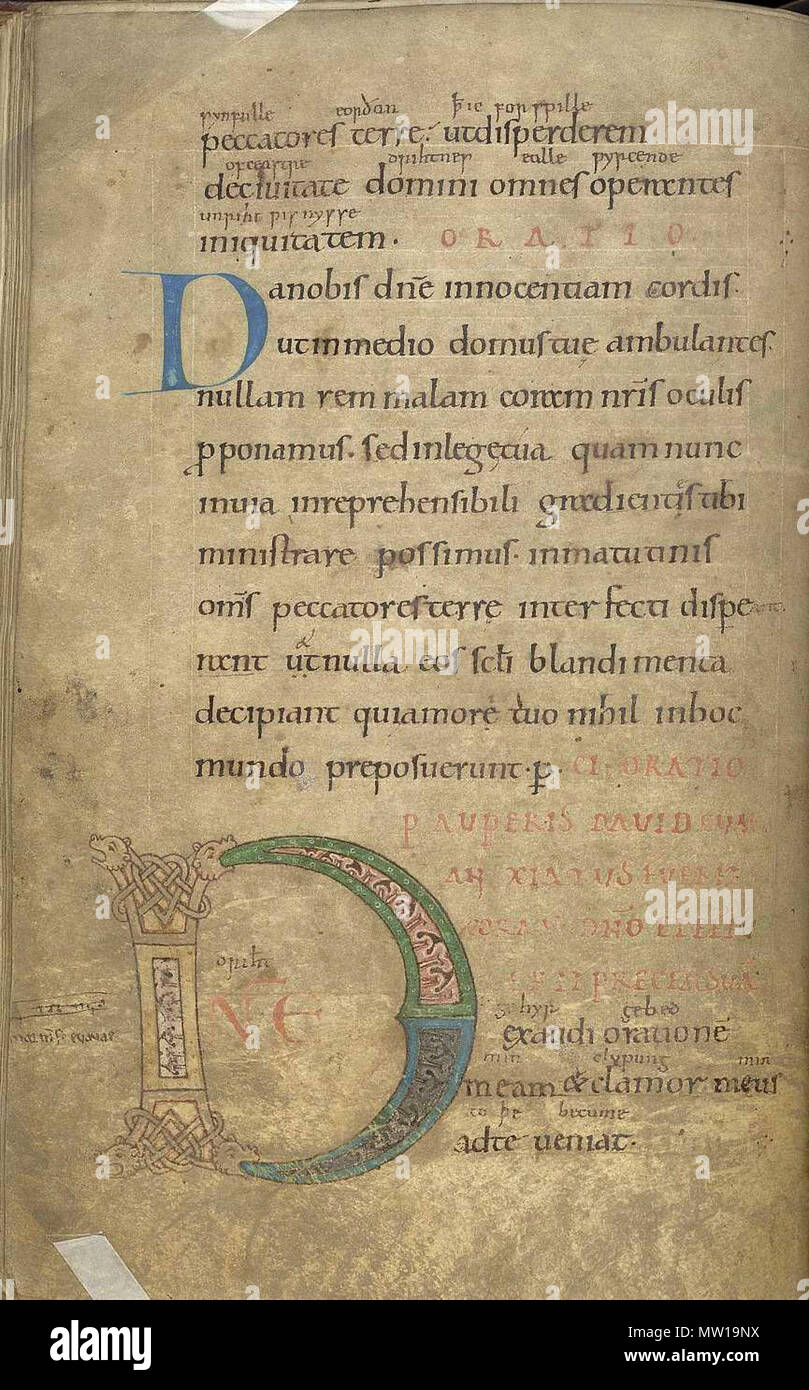 synfulle eorðan þ ic forspille
peccatores terre: ut disperderem
drihtnes ealle wyrcende
de ciuitate domini omnes operantes
unriht wisnysse
iniquitatem. ORATIO
Da nobis dñe innocentiam cordis.
ut in medio domus tuę ambulantes
nullam rem malam coram nr̄is oculis
ꝓponamus. sed in legę tua quam nunc
in uia inreprehensibili gradientis tibi
ministrare possimus. in matutinis
om̄s peccatores terrę interfecti dispe
reant ut nulla eos scłi blandimenta
decipiant qui amorę tuo nihil in hoc
mundo preposuerunt. ꝑ. CI. ORATIO
PAUPERIS DAUID CUM
ANXIATUS FUERIT
PRECEM SUĀ
driht gehyr gebed
DN̄E exaudi orationē
min clypung min
meam & clamor meus
to þe becume
ad te ueniat.
alamy
Image ID: MW19NX
www.alamy.com